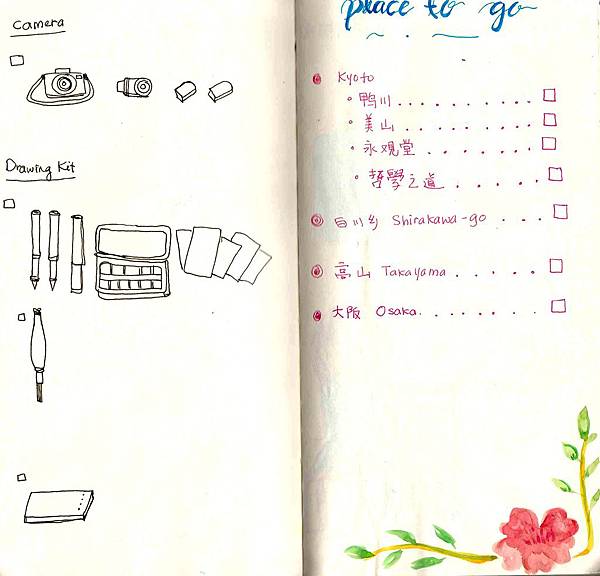 Camera
Drawing Kit
place to go
Kyoto
・鴨川..........
・美山.........
・永观堂.......
・哲學之道.....
白川乡 Shirakawa-go ...
高山 Takayama......
大阪 Osaka........